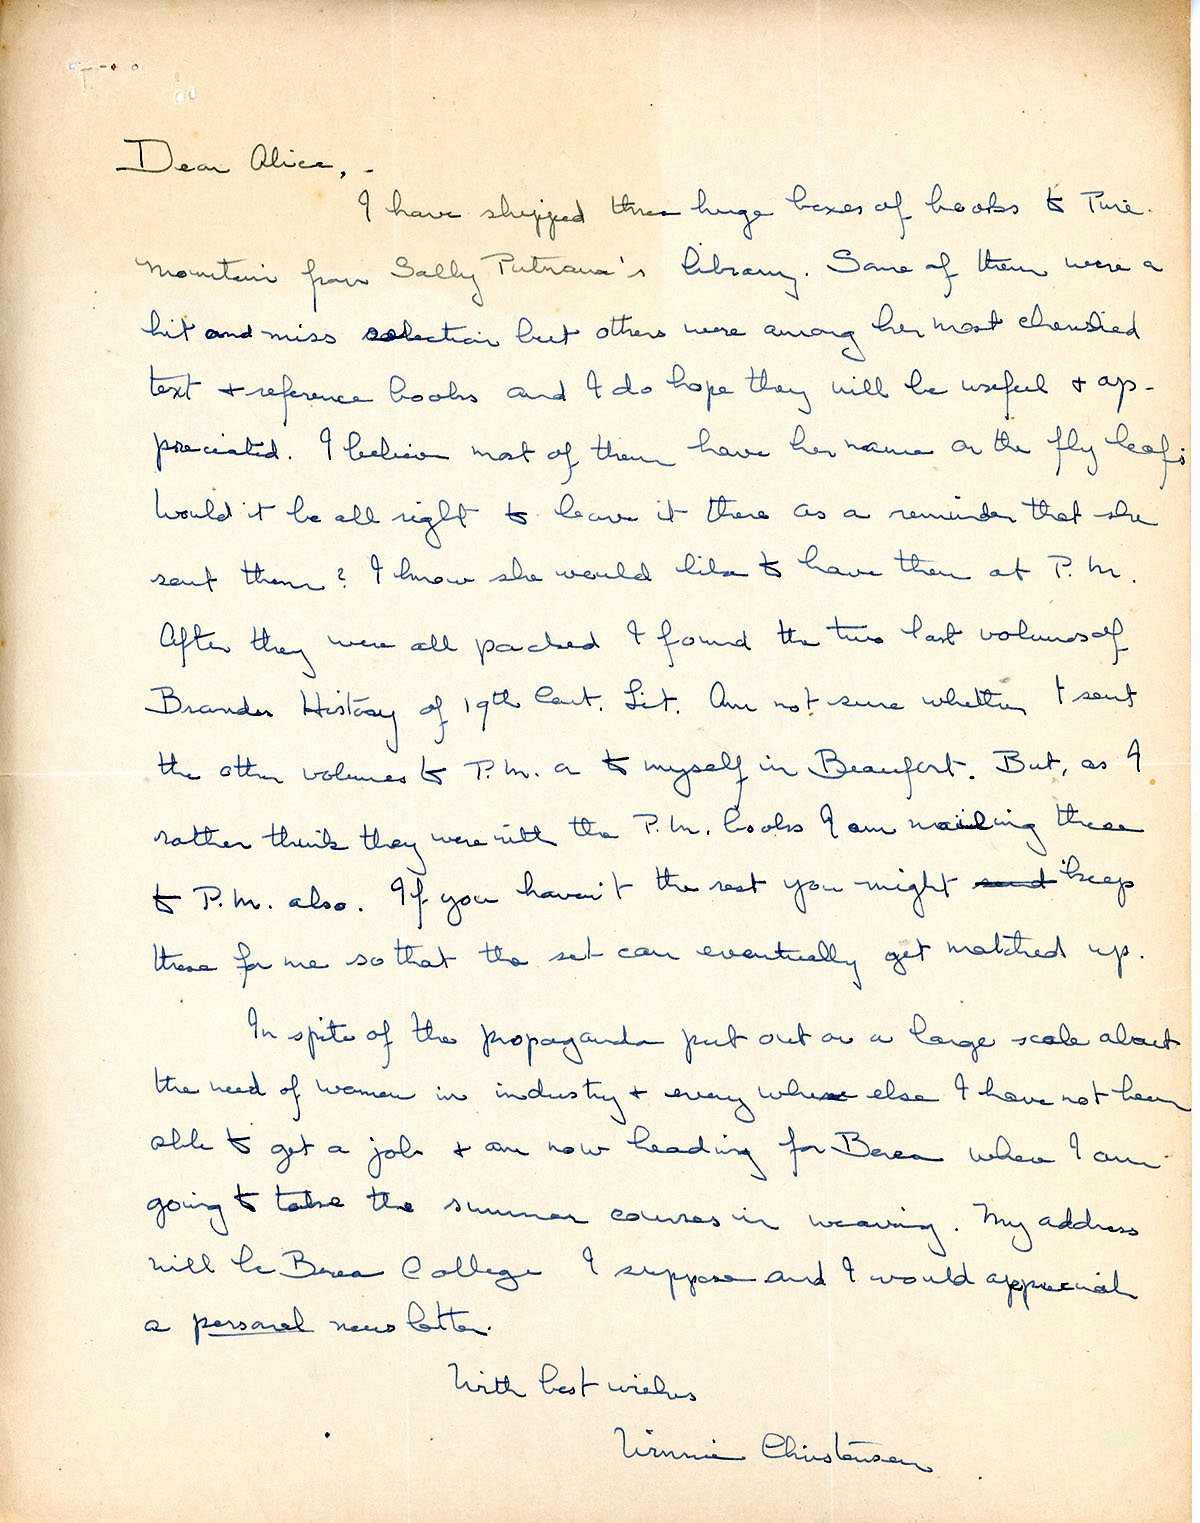 Dear Alice, -
I have shipped three huge boxes of books to Pine
Mountain from Sally Putnam's library. Some of them were a
hit and miss selection but others were among her most cherished
text + reference books and I do hope they will be useful + ap-
preciated. I believe most of them have her name on the fly leafs
Would it be all right to leave it there as a reminder that she
sent them? I know she would like to have them at P. M.
After they were all packed I found the two last volumes of
Brandes History of 19th Cent. Lit. Am not sure whether I sent
the other volumes to P.M. or to myself in Beaufort. But, as I
rather think they were with the P.M. books I am mailing these
to P.M. also. If you haven't the rest you might send keep
these for me so that the set can eventually get matched up.
In spite of the propaganda put out on a large scale about
the need of women in industry + every where else I have not been
able to get a job + am now heading for Berea where I am
going to take the summer courses in weaving. My address
will be Berea College I suppose and I would appreciate
a personal news letter.
With best wishes
Winnie Christensen